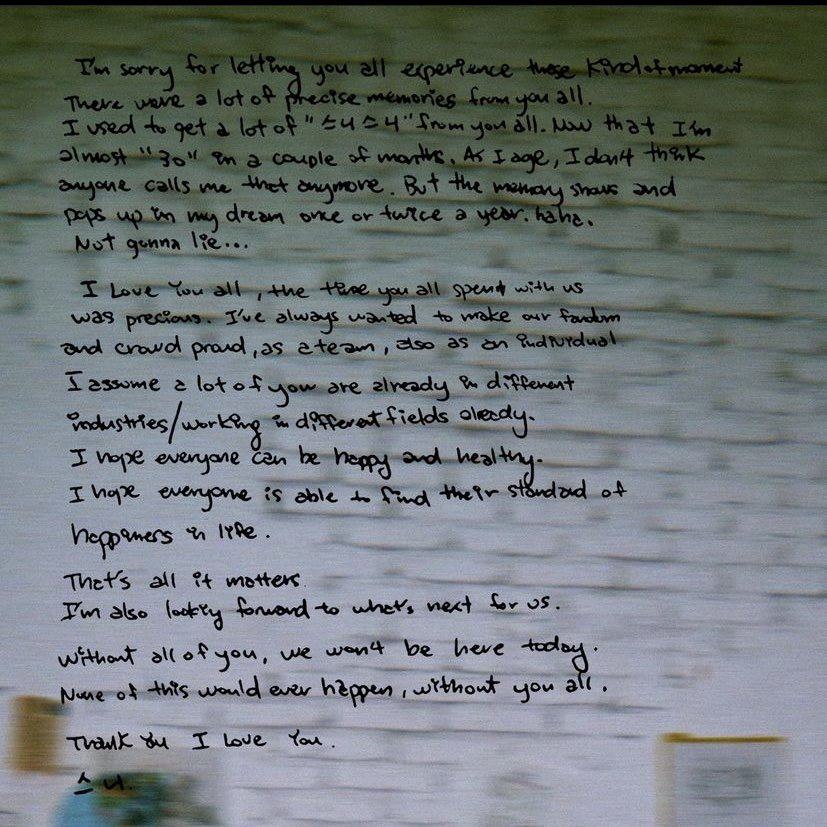 I'm sorry for letting you all experience these kind of moment
There were a lot of precise memories from you all.
I used to get a lot of "스니스니" from you all. Now that I'm
almost "30" in a couple of months. As I age, I don't think
anyone calls me that anymore. But the memory shows and
pops up in my dream once or twice a year. haha.
Not gonna lie...
I Love You all, the time you all spent with us
was precious. I've always wanted to make our fandom
and crowd proud, as a team, also as an individual
I assume a lot of you are already in different
industries/working in different fields already.
I hope everyone can be happy and healthy.
I hope everyone is able to find their standard of
happiness in life.
That's all it matters.
I'm also looking forward to what's next for us.
Without all of you, we won't be here today.
None of this would ever happen, without you all.
Thank You I Love You.
스니.